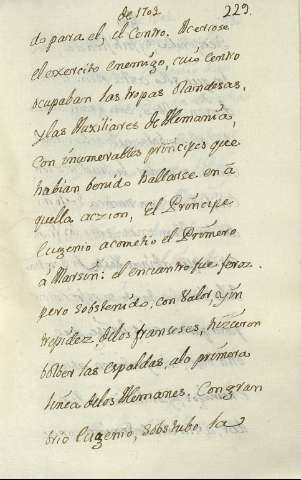 de 1709
229.
do para el, el Centro. Acercose
el exercito enemigo, cuio Centro
ocupaban las tropas olandesas,
y las Auxiliares de Alemania,
con inumerables principes que
habian benido hallarse en a
quella aczion, El Principe
Eugenio acometio el Primero
a Marsin: el encuentro fue feroz.
pero sobstenido, con valor, y in
trepidez. de los franseses, hizieron
bolber las espaldas, a la primera
linea de los Alemanes. Con gran
brio Eugenio, sobstubo, la